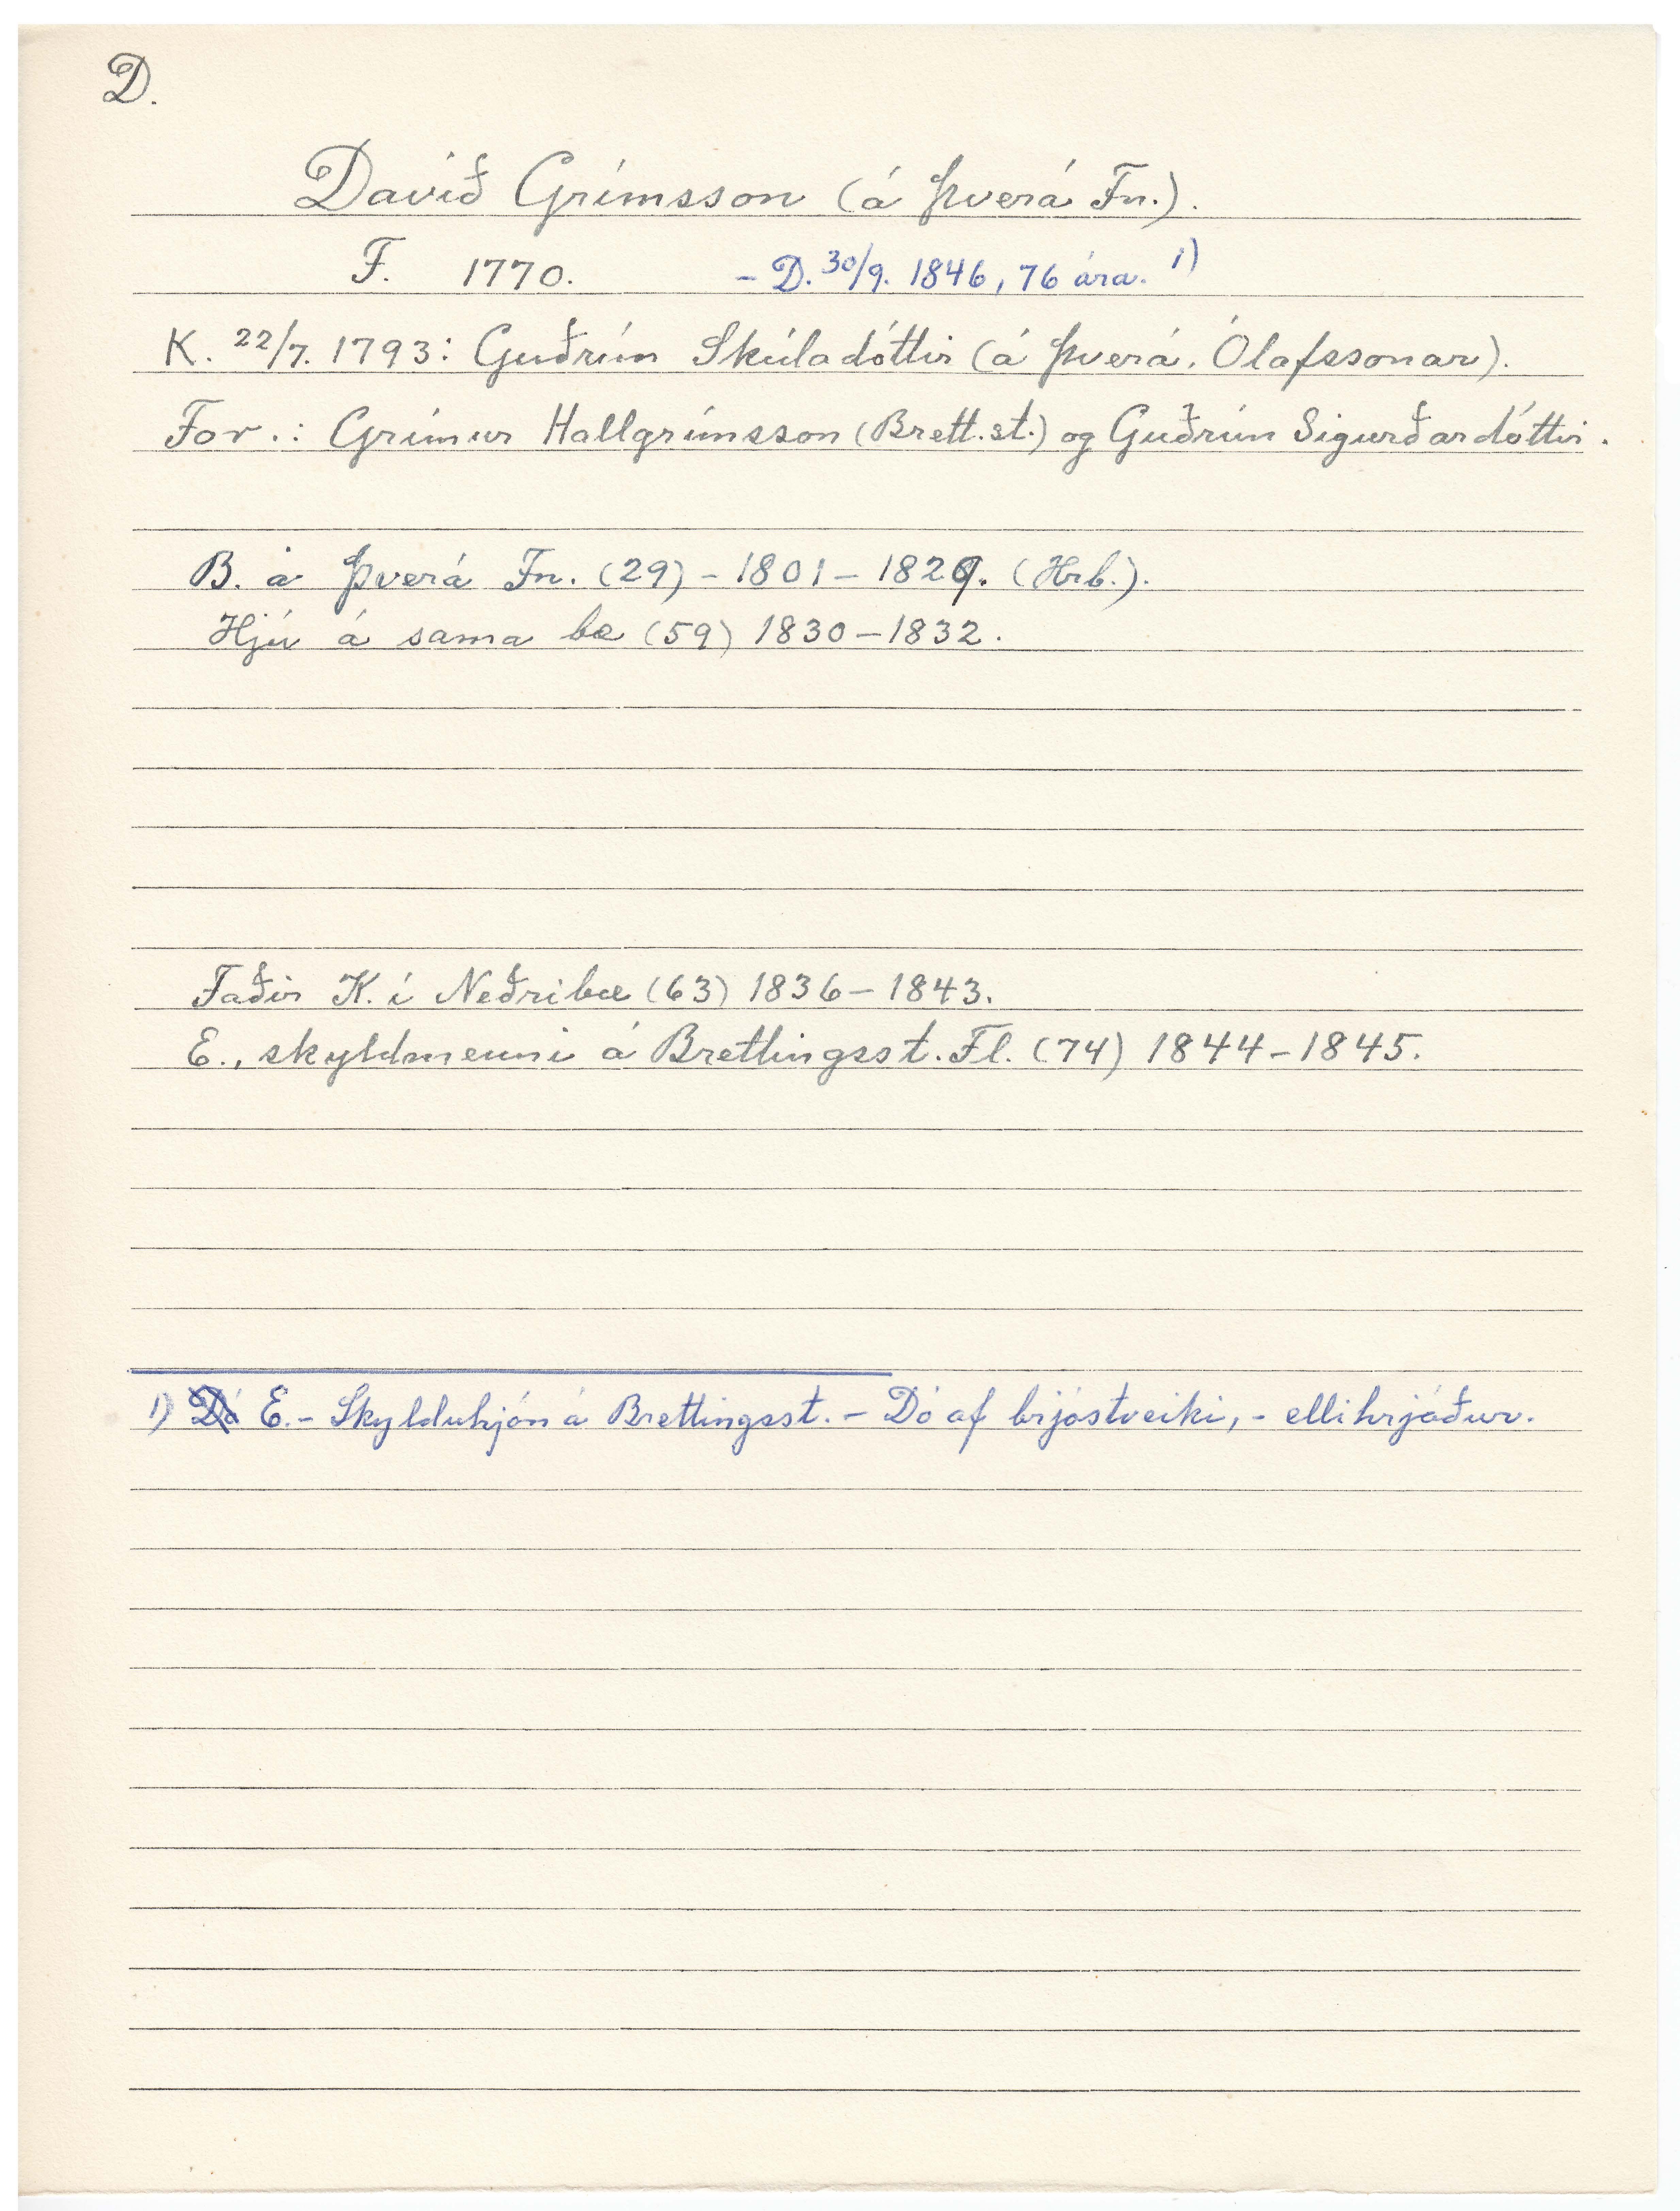 D.
Davíð Grímsson (á Þverá Fn.).
F. 1770. – D. 30/9. 1846, 76 ára. 1)
K. 22/7. 1793: Guðrún Skúladóttir (á Þverá, Ólafssonar).
For.: Grímur Hallgrímsson (Brett.st.) og Guðrún Sigurðardóttir.
B. á Þverá Fn. (29) – 1801 – 1829. (Hrb.).
Hjú á sama bæ (59) 1830 – 1832.
Faðir K. í Neðribæ (63) 1836 – 1843.
E., skyldmenni á Brettingsst. Fl. (74) 1844 – 1845.
1) E. – Skylduhjón á Brettingsst. – Dó af brjóstveiki, – ellihrjáður.